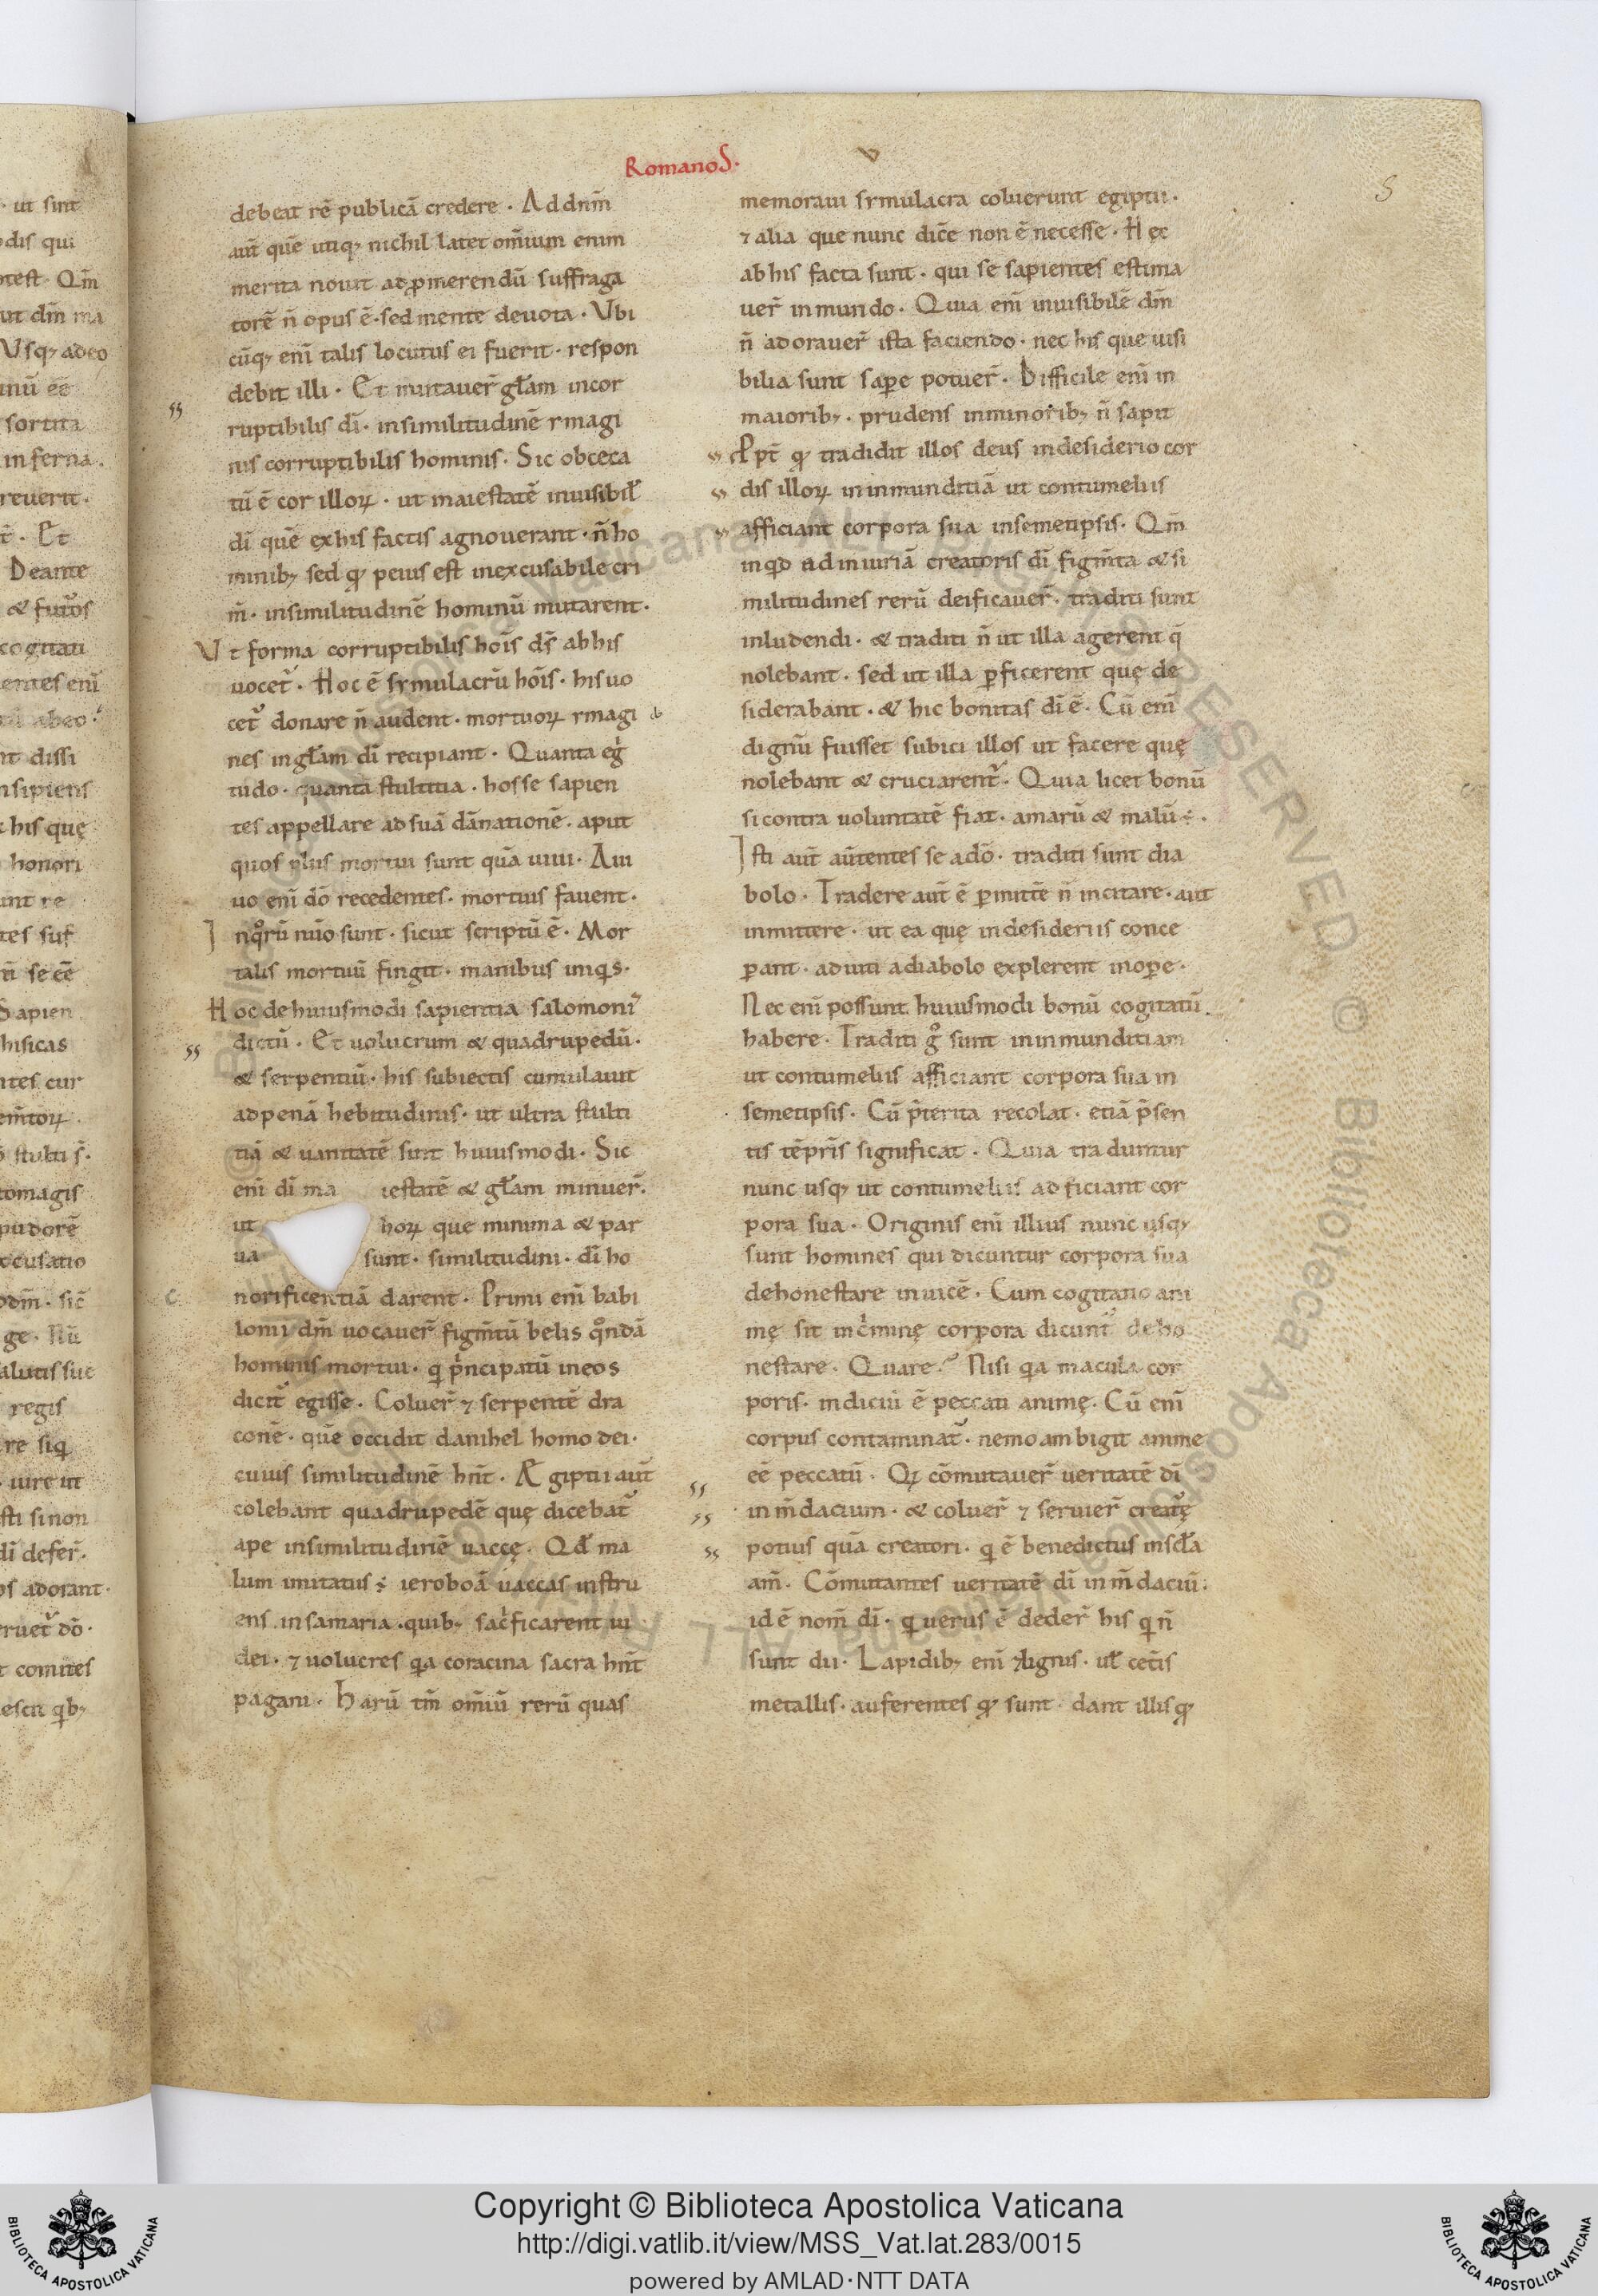 RomanoS.
V
5
debeat rē publicā credere · Ad dnm̄
aut̄ quē utiq; nichil latet om̄ium enim
merita nouit ad ꝓmerendū suffraga
torē n̄ opus ē · sed mente deuota · Vbi
cūq; eni̅ talis locutus ei fuerit · respon
debit illi · Et mutauer̄ głam incor
ruptibilis dī · insimilitudinē ymagi
nis corruptibilis hominis · Sic obceca
tū ē cor illoꝝ · ut maiestatē inuisibił
dī quē exhis factis agnouerant · n̄ ho
minib; sed qđ peius est inexcusabile cri
m̄ · insimilitudinē hominū mutarent ·
Vt forma corruptibilis hoīs ds̄ abhis
uocet᷑ · Hoc ē symulacrū hoīs · his uo
cet᷑ donare n̄ audent · mortuoꝝ ymagi
nes ingłam dī recipiant · Quanta eg̍
tudo · quanta stultitia · hosse sapien
tes appellare ad suā dānationē · aput
quos plus mortui sunt quā uiui · Aui
uo eni̅ dō recedentes · mortuis fauent ·
Inqͦrū nūo sunt · sicut scriptū ē · Mor
talis mortuū fingit · manibus iniqs ·
Hoc de huiusmodi sapientia salomoni᷑
dictū · Et uolucrum & quadrupedū ·
& serpentiū · his subiectis cumulauit
ad penā hebitudinis · ut ultra stulti
tiā & uanitatē sint huiusmodi · Sic
eni̅ dī ma iestatē & głam minuer̄ ·
ut hoꝝ que minima & par
ua sunt · similitudini · dī ho
norificentiā darent · Primi eni̅ babi
lonii dm̄ uocauer̄ figm̄tū belis qͦndā
hominis mortui · q p̍ncipatū ineos
dicit᷑ egisse · Coluer̄ ⁊ serpentē dra
conē · quē occidit danihel homo dei ·
cuius similitudinē hnt̄ · Ægiptii aut̄
colebant quadrupedē quę dicebat᷑
ape insimilitudinē uaccę · Qd̄ ma
lum imitatus ÷ ieroboā uaccas instru
ens insamaria · quib; sac̍ficarent iu
dei · ⁊ uolucres qa coracina sacra hnt̄
pagani · Harū tm̄ om̄iū rerū quas
memoraui symulacra coluerunt egiptii ·
⁊ alia que nunc dic̄e non ē necesse · Hęc
ab his facta sunt · qui se sapientes estima
uer̄ in mundo · Quia eni̅ inuisibilē dm̄
n̄ adorauer̄ ista faciendo · nec his que uisi
bilia sunt sapꝑe potuer̄ · Difficile eni̅ in
maiorib; · prudens inminorib; n̄ sapit
Ppt̄ qđ tradidit illos deus indesiderio cor
dis illoꝝ ininmunditiā ut contumeliis
afficiant corpora sua insemetipsis · Qm̄
inqđ ad iniuriā creatoris dī figm̄ta & si
militudines rerū deificauer̄ · traditi sunt
inludendi · & traditi n̄ ut illa agerent q̄
nolebant · sed ut illa ꝑficerent quę de
siderabant · & hic bonitas dī ē · Cū eni̅
dignū fuisset subici illos ut facere quę
nolebant & cruciarent᷑ · Quia licet bonū
si contra uoluntatē fiat · amarū & malū ÷ ·
Isti aut̄ aūtentes se adō · traditi sunt dia
bolo · Tradere aut̄ ē ꝑmittē n̄ incitare · aut
inmittere · ut ea quę indesideriis conce
ꝑant · adiuti adiabolo explerent inoꝑe ·
Nec eni̅ possunt huiusmodi bonū cogitatū
habere · Traditi gͦ sunt ininmunditiam
ut contumeliis afficiant corpora sua in
semetipsis · Cū p̄terita recolat · etiā p̄sen
tis tēpris significat · Quia traduntur
nunc usq; ut contumeliis adficiant cor
pora sua · Originis eni̅ illius nunc usq;
sunt homines qui dicuntur corpora sua
dehonestare inuicē · Cum cogitatio ani
mę sit inc̍minę corpora dicunt᷑ deho
nestare · Quare? Nisi qa macula cor
poris · indiciū ē peccati animę · Cū eni̅
corpus contaminat᷑ · nemo ambigit anime
eē peccatū · Qꝝ cōmutauer̄ ueritatē dī
in m̄dacium · & coluer̄ ⁊ seruier̄ creat᷑ę
potius quā creatori · q ē benedictus insc̄la
am̄ · Cōmutantes ueritatē dī in m̄daciū ·
id ē nom̄ dī · q uerus ē deder̄ his q n̄
sunt dii · Lapidib; eni̅ ⁊lignis · uł cet̄is
metallis · auferentes qđ sunt · dant illis qđ
Copyright © Biblioteca Apostolica Vaticana
http://digi.vatlib.it/view/MSS_Vat.lat.283/0015
powered by AMLAD·NTT DATA
BIBLIOTECA APOSTOLICA VATICANA
BIBLIOTECA APOSTOLICA VATICANA